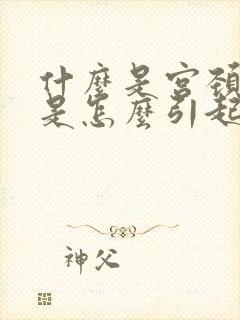 什麼是宮頸
是怎麼引起
神父